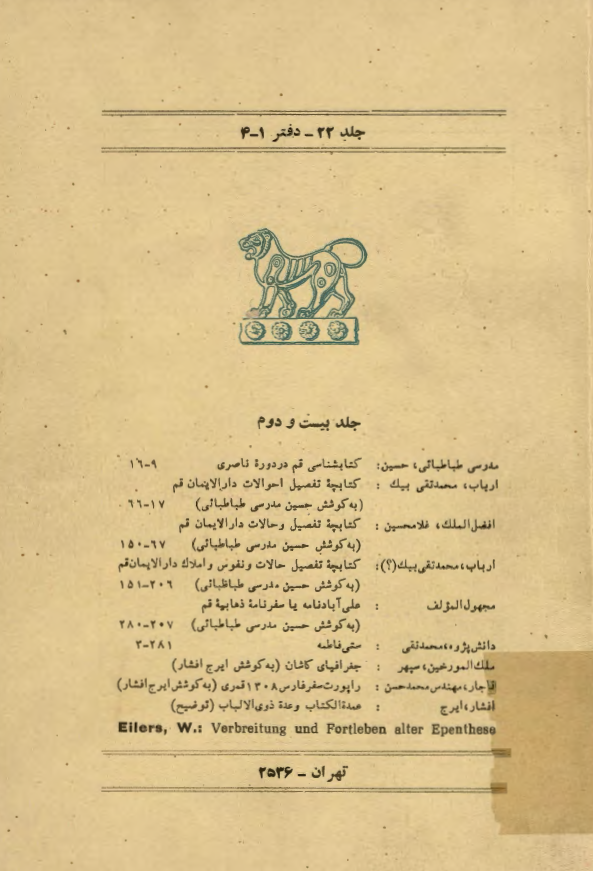 جلد ۲۲ ـ دفتر ۱ـ۴
جلد بیست و دوم
مدرسی طباطبائی، حسین: کتابشناسی قم در دورة ناصری ۹-۱۶
ارباب، محمدتقی بیك : کتابچة تفصیل احوالات دارالایمان قم
(به کوشش حسین مدرسی طباطبائی) ۱۷-۶۶
افضل‌الملك، غلامحسین : کتابچة تفصیل وحالات دارالایمان قم
(به کوشش حسین مدرسی طباطبائی) ۶۷-۱۵۰
ارباب، محمدتقی‌بیك(؟): کتابچة تفصیل حالات ونفوس و املاك دارالایمان‌قم
(به کوشش حسین مدرسی طباطبائی) ۱۵۱-۲۰۶
مجهول‌المؤلف : علی‌آبادنامه یا سفرنامة ذهابیة قم
(به کوشش حسین مدرسی طباطبائی) ۲۰۷-۲۸۰
دانش‌پژوه، محمدتقی : ستی‌فاطمه ۲۸۱-۳
ملك‌المورخین، سپهر : جغرافیای کاشان (به کوشش ایرج افشار)
قاجار، مهندس محمدحسن : راپورت سفر فارس ۱۳۰۸ قمری (به کوشش ایرج افشار)
افشار، ایرج : عمدةالکتاب وعدة ذوی‌الالباب (توضیح)
Eilers, W.: Verbreitung und Fortleben alter Epenthese
تهران ـ ۲۵۳۶